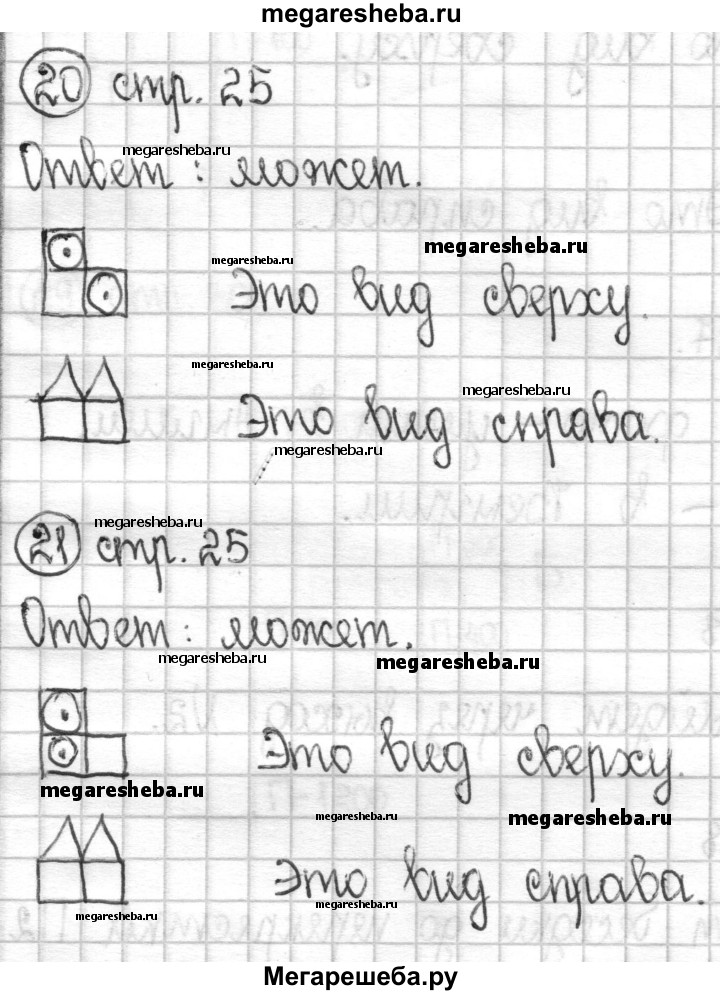 megaresheba.ru
20 стр. 25
megaresheba.ru
Ответ: может.
megaresheba.ru
megaresheba.ru
Это вид сверху.
megaresheba.ru
megaresheba.ru
Это вид справа.
megaresheba.ru
megaresheba.ru
21 стр. 25
Ответ: может.
megaresheba.ru
megaresheba.ru
Это вид сверху.
megaresheba.ru
megaresheba.ru
megaresheba.ru
Это вид справа.
megaresheba.ru
Мегарешеба.ру